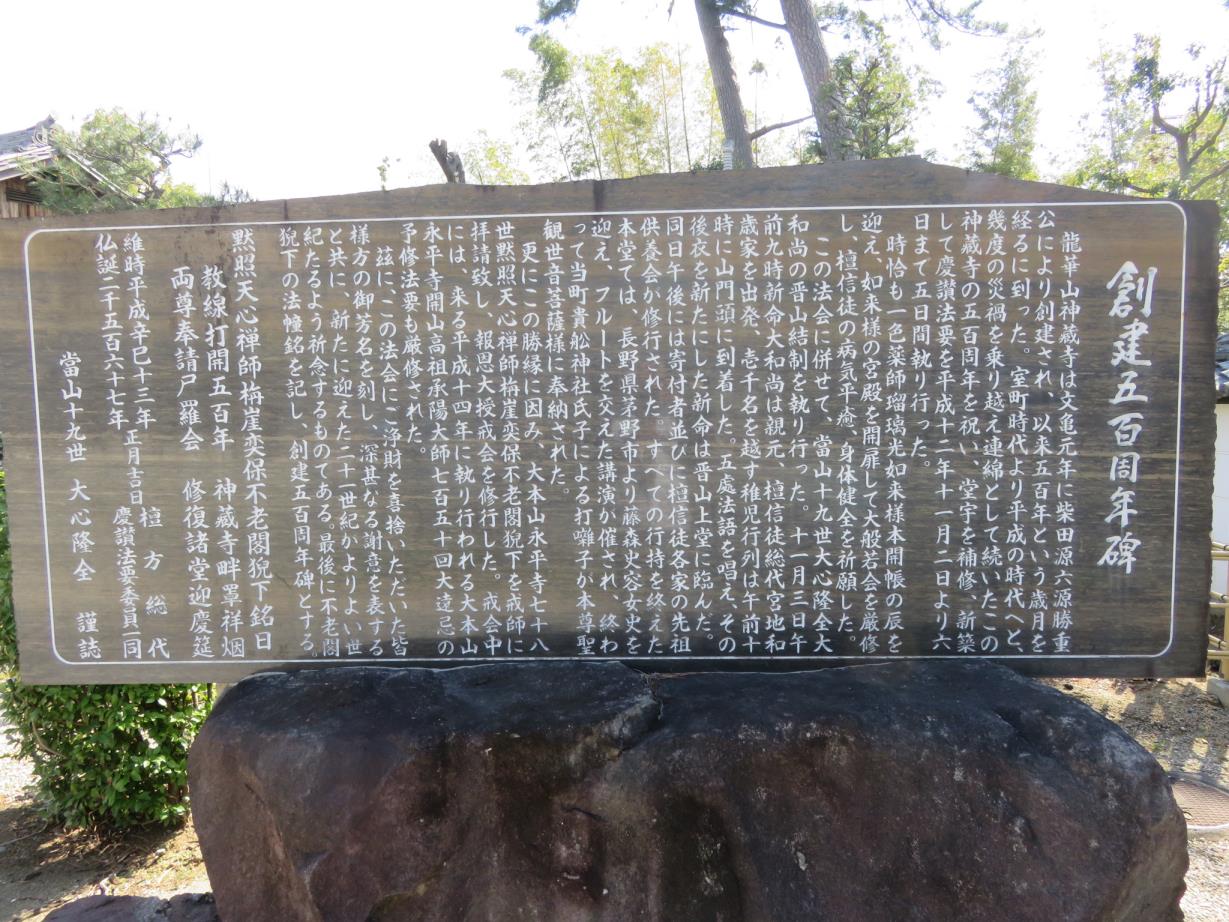 創建五百周年碑
龍華山神藏寺は文亀元年に柴田源六源勝重
公により創建され、以来五百年という歳月を
経るに到った。室町時代より平成の時代へと、
幾度の災禍を乗り越え連綿として続いたこの
神藏寺の五百周年を祝い、堂宇を補修、新築
して慶讃法要を平成十二年十一月二日より六
日まで五日間執り行った。
時恰も一色薬師瑠璃光如来様本開帳の辰を
迎え、如来様の宮殿を開扉して大般若会を厳修
し、檀信徒の病気平癒、身体健全を祈願した。
この法会に併せて、當山十九世大心隆全大
和尚の晋山結制を執り行った。十一月三日午
前九時新命大和尚は親元、檀信徒総代宮地和
歳家を出発、壱千名を越す稚児行列は午前十
時に山門頭に到着した。五處法語を唱え、その
後衣を新たにした新命は晋山上堂に臨んだ。
同日午後には寄付者並びに檀信徒各家の先祖
供養会が修行された。すべての行持を終えた
本堂では、長野県茅野市より藤森史容女史を
迎え、フルートを交えた講演が催され、終わ
って当町貴舩神社氏子による打囃子が本尊聖
観世音菩薩様に奉納された。
更にこの勝縁に因み、大本山永平寺七十八
世黙照天心禅師栴崖奕保不老閣猊下を戒師に
拝請致し、報恩大授戒会を修行した。戒会中
には、来る平成十四年に執り行われる大本山
永平寺開山高祖承陽大師七百五十回大遠忌の
予修法要も厳修された。
玆にこの法会にご浄財を喜捨いただいた皆
様方の御芳名を刻し、深甚なる謝意を表する
と共に、新たに迎えた二十一世紀がよりよい世
紀たるよう祈念するものである。最後に不老閣
猊下の法幢銘を記し、創建五百周年碑とする。
黙照天心禅師栴崖奕保不老閣猊下銘日
教線打開五百年 神藏寺畔罩祥烟
両尊奉請尸羅会 修復諸堂迎慶筵
維時平成辛巳十三年 正月吉日 檀方総代
慶讃法要委員一同
仏誕二千五百六十七年
當山十九世 大心隆全 謹誌